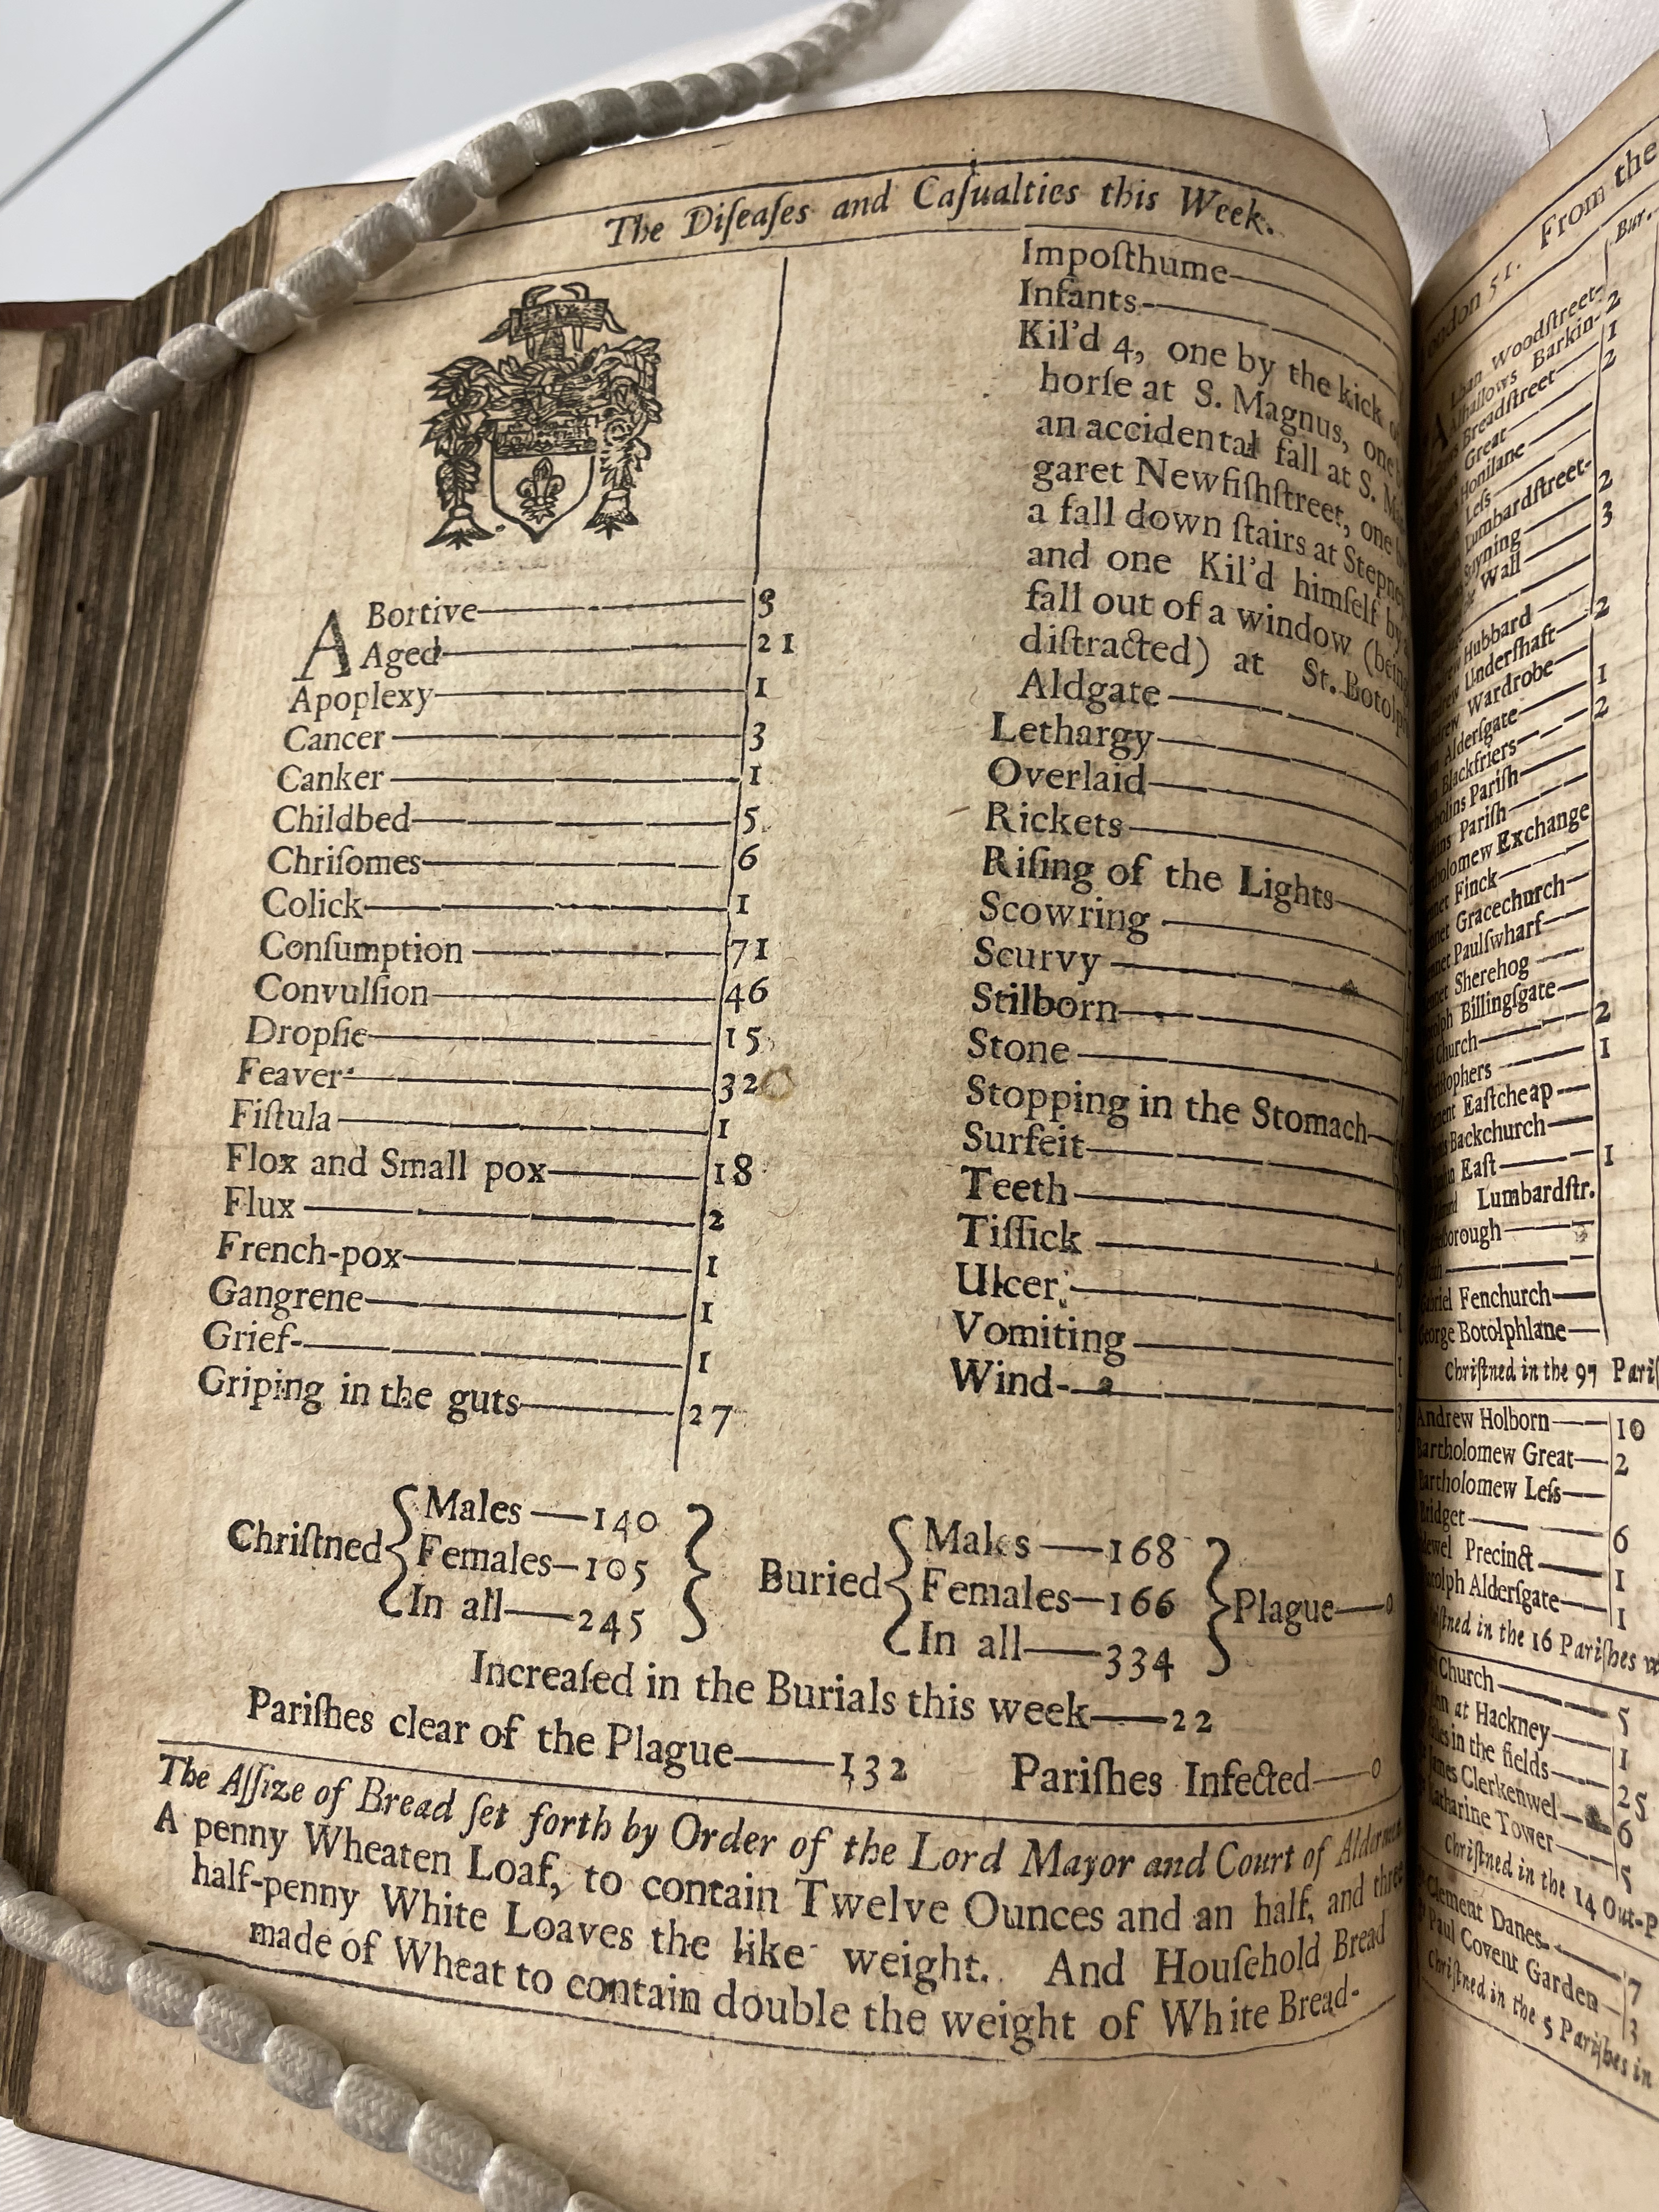 The Diſeaſes and Caſualties this Week.
ABortive 3
Aged 21
Apoplexy 1
Cancer 3
Canker 1
Childbed 5
Chriſomes 6
Colick 1
Conſumption 71
Convulſion 46
Dropſie 15
Feaver 32
Fiſtula 1
Flox and Small pox 18
Flux 2
French-pox 1
Gangrene 1
Grief 1
Griping in the guts 27
Impoſthume
Infants
Kil'd 4, one by the kick
horſe at S. Magnus, one
an accidental fall at S.
garet Newfiſhſtreet, one
a fall down ſtairs at
and one Kil'd himſelf by
fall out of a window
diſtracted) at St.
Aldgate
Lethargy
Overlaid
Rickets
Riſing of the Lights
Scowring
Scurvy
Stilborn
Stone
Stopping in the Stomach
Surfeit
Teeth
Tiſſick
Ulcer
Vomiting
Wind
Chriſtned { Males—140
Females—105
In all—245 }
Buried { Males—168
Females—166
In all—334 } Plague—0
Increaſed in the Burials this week—22
Pariſhes clear of the Plague—132 Pariſhes Infected—0
The Aſſize of Bread ſet forth by Order of the Lord Mayor and Court of
A penny Wheaten Loaf, to contain Twelve Ounces and an half, and three
half-penny White Loaves the like weight. And Houſehold Bread
made of Wheat to contain double the weight of White Bread.
51. From the
Bur.
Woodſtreet
Barkin 2
Breadſtreet 1
Great 2
Honilane
Leſs
Lumbardſtreet
Wall 3
Hubbard
Underſhaft 2
Wardrobe
Alderſgate 1
Blackfriers 2
Pariſh
Pariſh
Exchange
Finck
Gracechurch
Paulſwharf
Sherehog
Billingſgate
Church 2
1
Eaſtcheap
Backchurch
Eaſt 1
Lumbardſtr.
Fenchurch
Botolphlane
Chriſtned in the 97
Andrew Holborn 10
Bartholomew Great 2
Bartholomew Leſs
Bridget 6
Precinct 1
Alderſgate 1
in the 16 Pariſhes
Church 5
at Hackney 1
in the fields 25
James Clerkenwel 6
Tower 5
Chriſtned in the 14
Clement Danes 7
Paul Covent Garden 3
Chriſtned in the 5 Pariſhes in